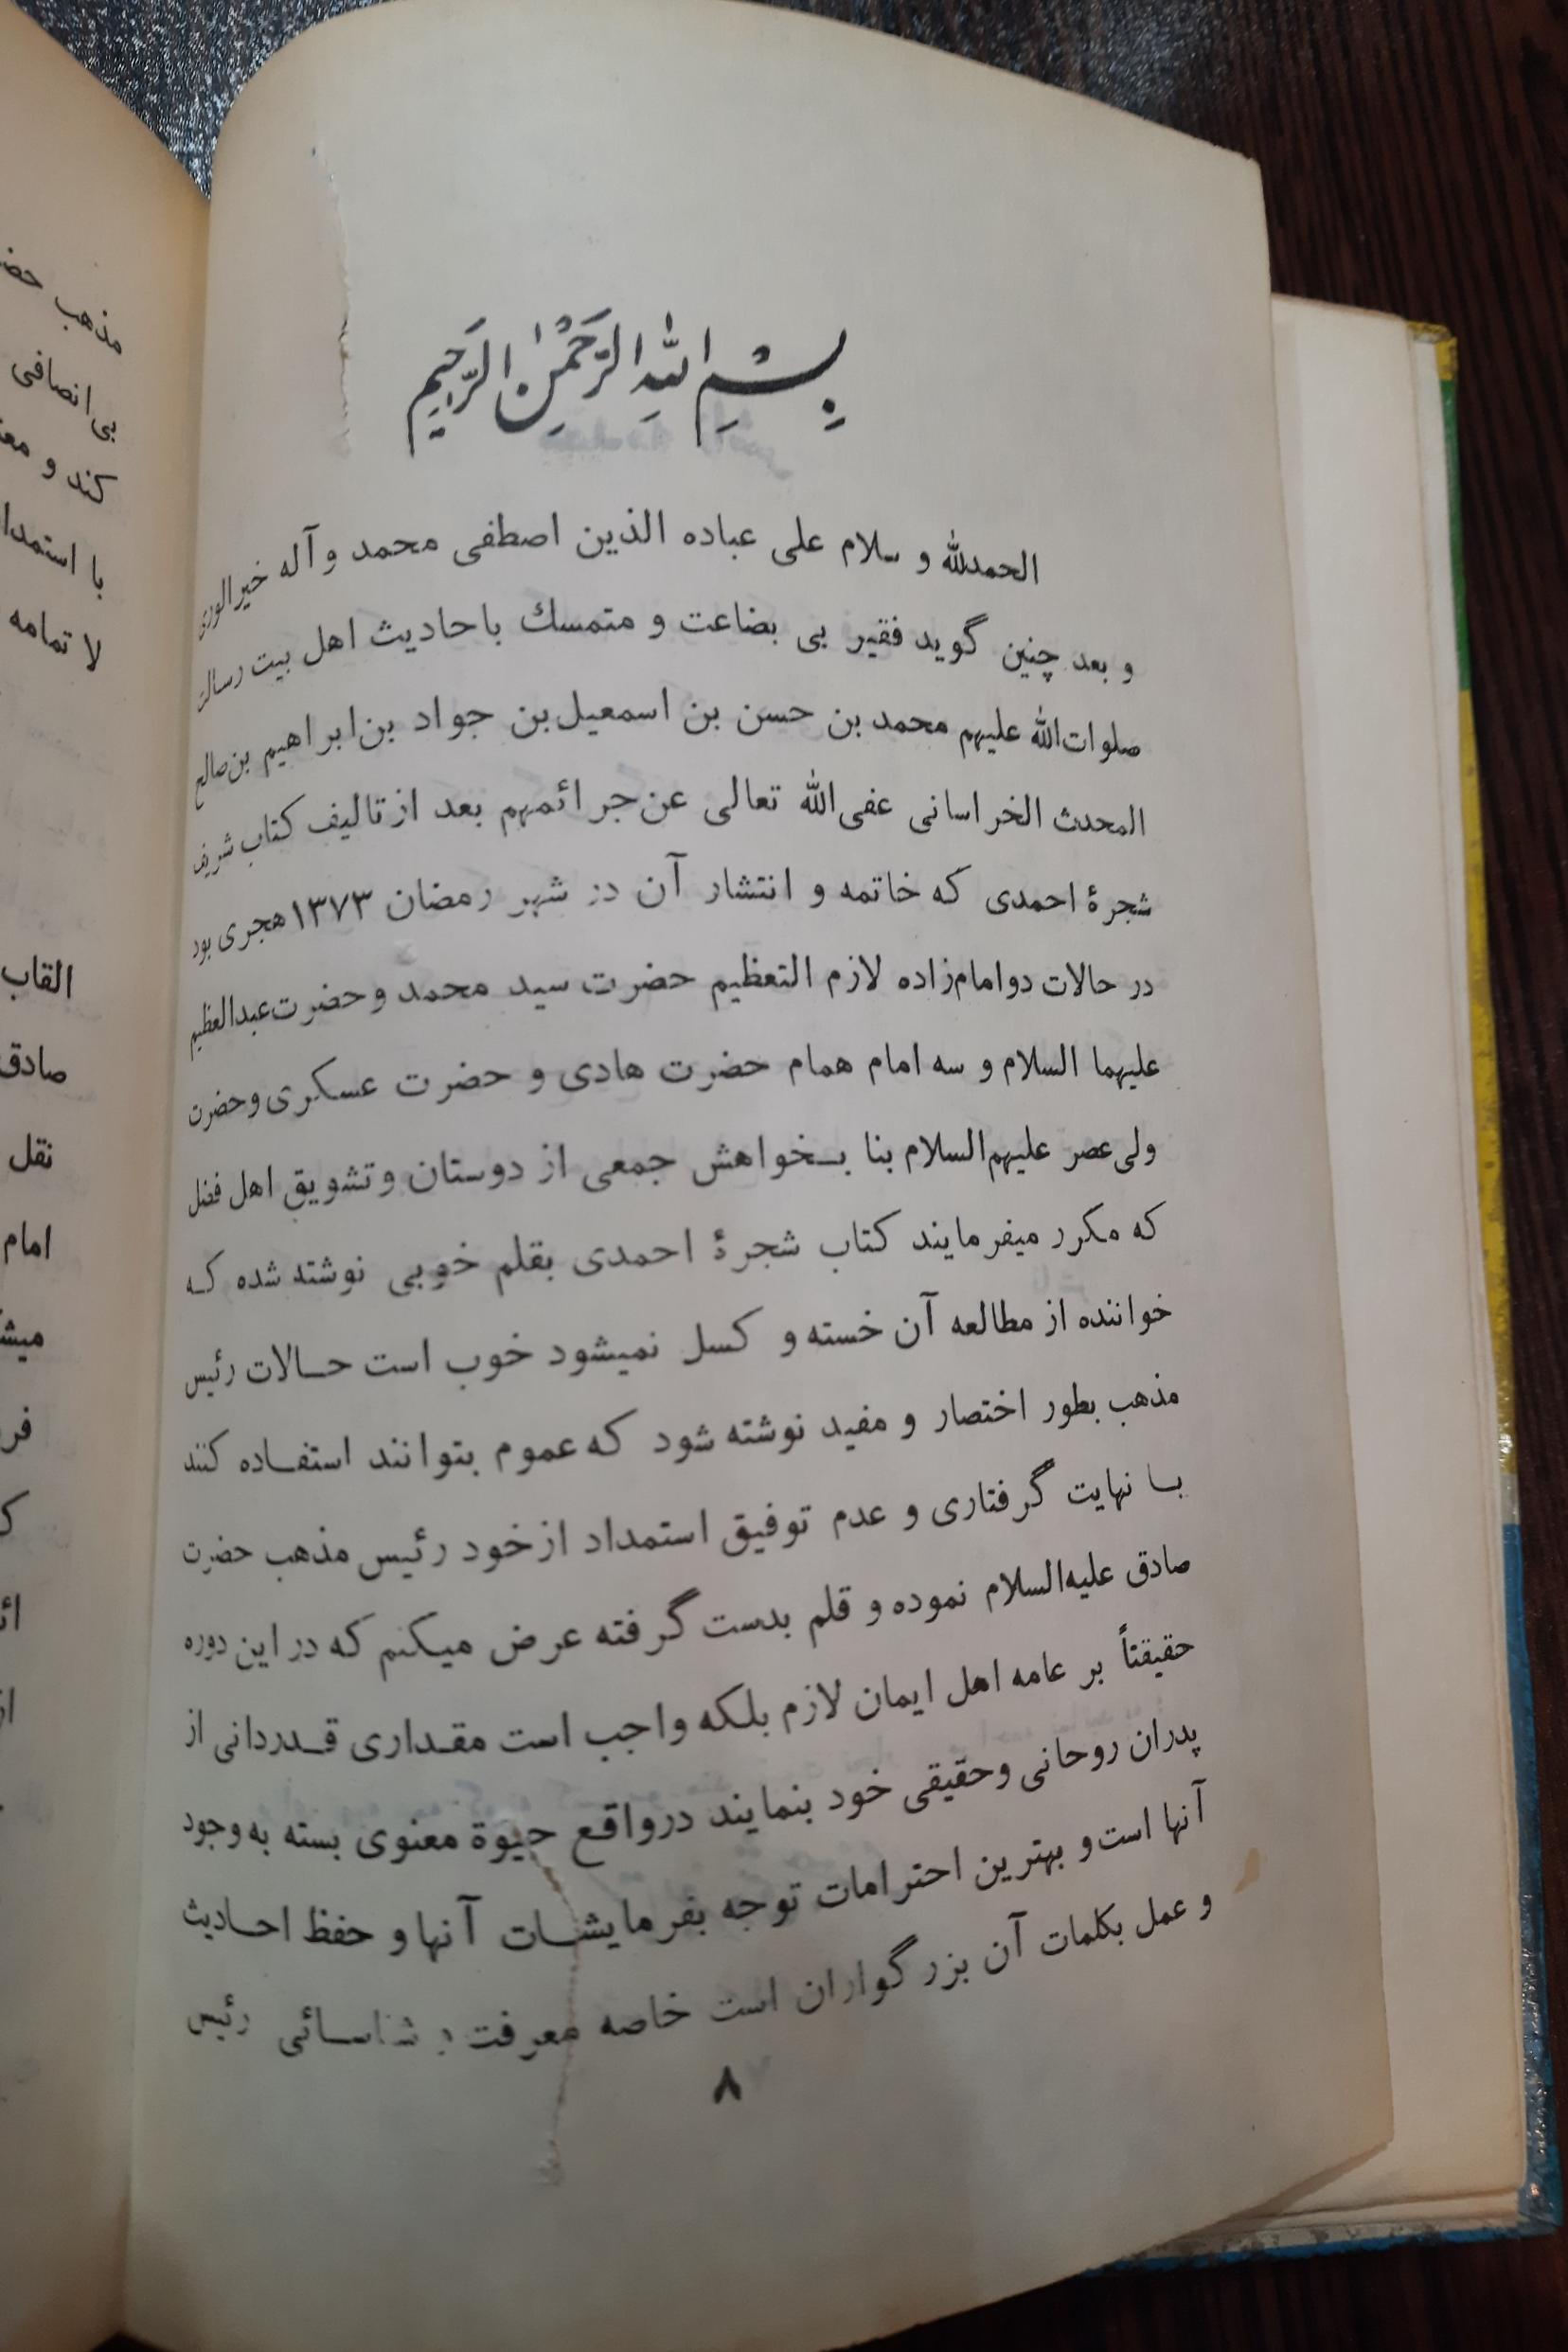 بِسْمِ اللهِ الرَّحْمٰنِ الرَّحِیمِ
الحمدلله و سلام علی عباده الذین اصطفی محمد و آله خیرالوری
و بعد چنین گوید فقیر بی بضاعت و متمسك باحادیث اهل بیت رسالت
صلوات‌الله علیهم محمد بن حسن بن اسمعیل‌بن جواد بن‌ابراهیم بن‌صالح
المحدث الخراسانی عفی‌الله تعالی عن‌جرائمهم بعد از تالیف کتاب شریف
شجرهٔ احمدی که خاتمه و انتشار آن در شهر رمضان ۱۳۷۳ هجری بود
در حالات دو امام‌زاده لازم التعظیم حضرت سید محمد و حضرت عبدالعظیم
علیهما السلام و سه امام همام حضرت هادی و حضرت عسکری و حضرت
ولی‌عصر علیهم‌السلام بنا بـخواهش جمعی از دوستان و تشویق اهل فضل
که مکرر میفرمایند کتاب شجرهٔ احمدی بقلم خوبی نوشته شده کـه
خواننده از مطالعه آن خسته و کسل نمیشود خوب است حـالات رئیس
مذهب بطور اختصار و مفید نوشته شود که عموم بتوانند استفـاده کنند
بـا نهایت گرفتاری و عدم توفیق استمداد از خود رئیس مذهب حضرت
صادق علیه‌السلام نموده و قلم بدست گرفته عرض میکنم که در این دوره
حقیقتاً بر عامه اهل ایمان لازم بلکه واجب است مقـداری قـدردانی از
پدران روحانی و حقیقی خود بنمایند در واقع حیوة معنوی بسته به وجود
آنها است و بهترین احترامات توجه بفرمایشـات آنها و حفظ احـادیث
و عمل بکلمات آن بزرگواران است خاصه معرفت و شناسـائی رئیس
۸
مذهب
بی‌انصافی
کند و
با
لا تمامه
القاب
صادق
نقل
امام